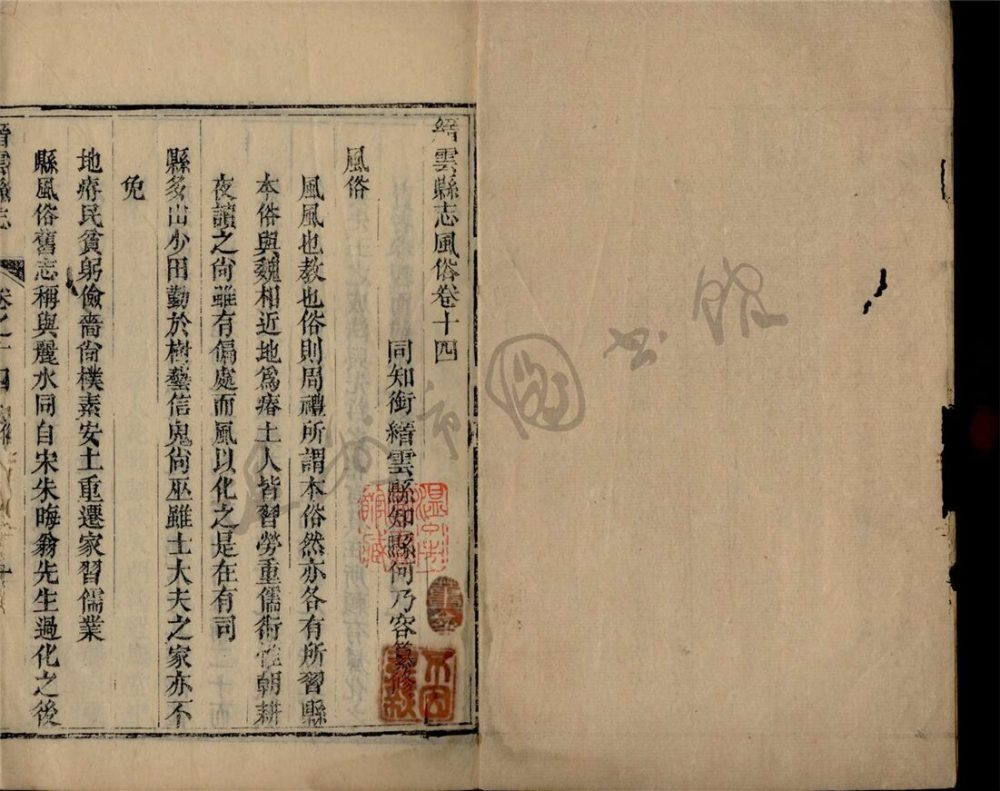 縉雲縣志風俗卷十四
同知銜縉雲縣知縣何乃容纂修
風俗
風風也教也俗則周禮所謂本俗然亦各有所習縣
本俗與魏相近地爲瘠土人皆習勞重儒術惟朝耕
夜讀之尙雖有偏處而風以化之是在有司
縣多山少田勤於樹藝信鬼尙巫雖士大夫之家亦不
免
地瘠民貧躬儉嗇尙樸素安土重遷家習儒業
縣風俗舊志稱與麗水同自宋朱晦翁先生過化之後
縉雲縣志
卷之十四
溫州市圖書館